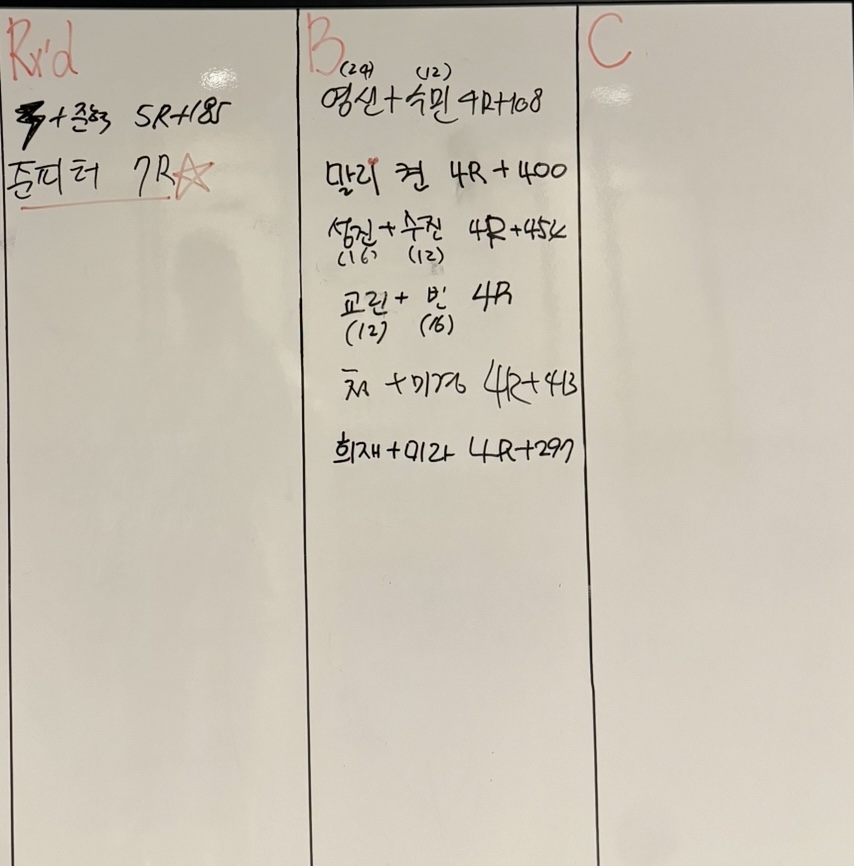 Rx'd
+준혁 5R+185
준피터 7R☆
B
(24) (12)
영신+수민 4R+108
말리 켠 4R+400
성진+수진 4R+45
(16) (12)
교린+빈 4R
(12) (16)
+미경 4R+413
희재+미라 4R+297
C